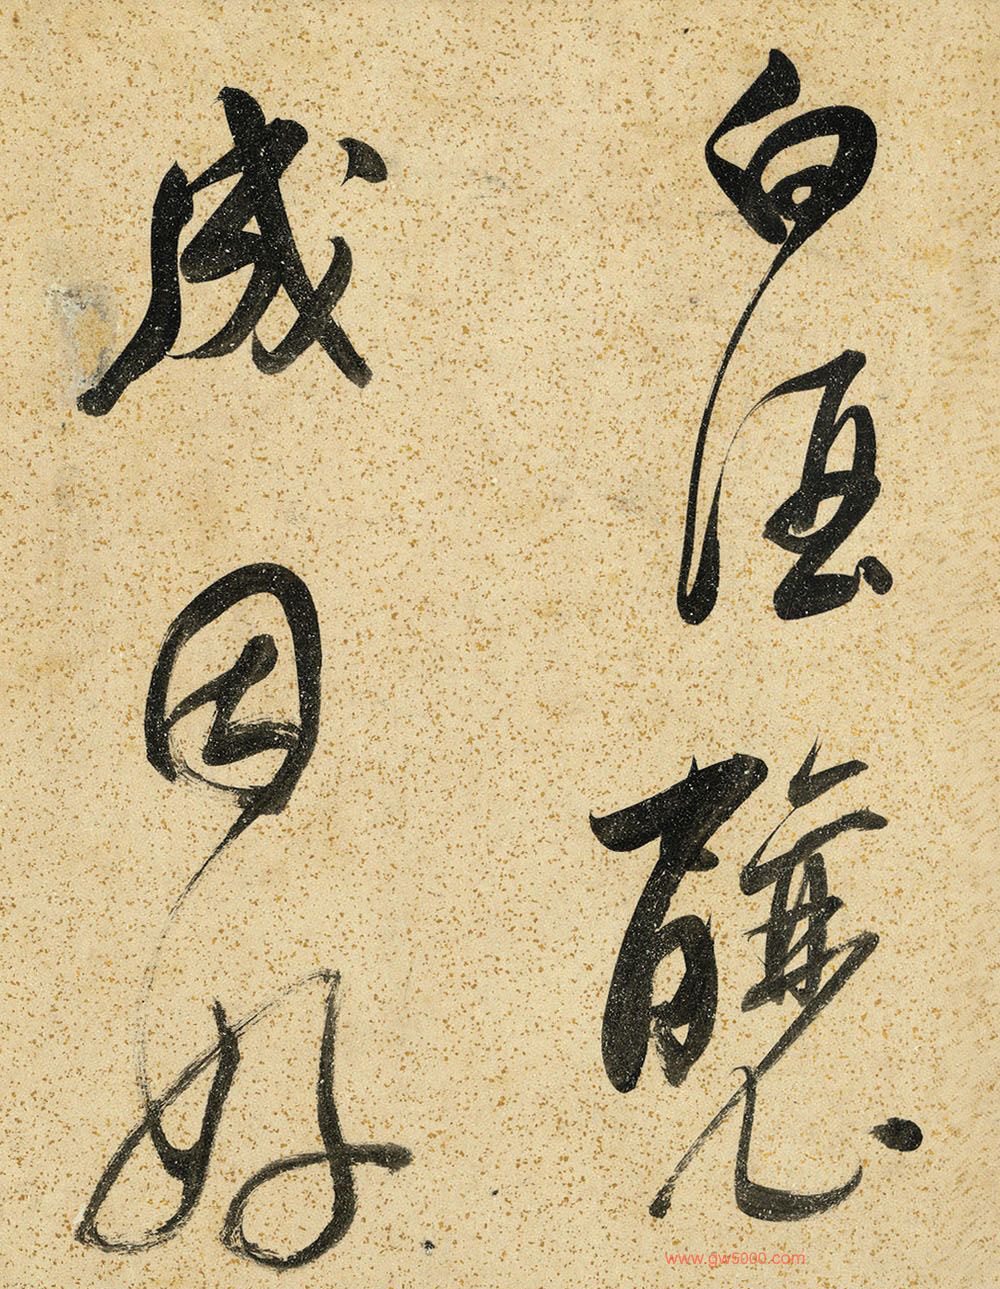 白酒釀
成因好
www.gw5000.com